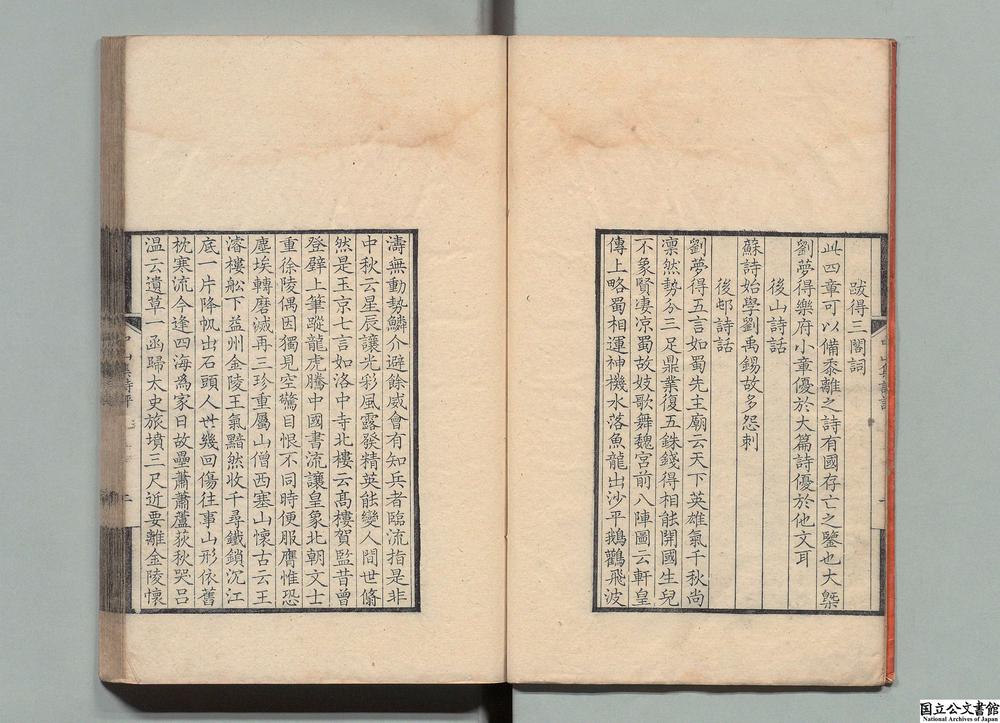 跋得三閣詞
此四章可以備黍離之詩有國存亡之鑒也大槩
劉夢得樂府小章優於大篇詩優於他文耳
後山詩話
蘇詩始學劉禹錫故多怨刺
後邨詩話
劉夢得五言如蜀先主廟云天下英雄氣千秋尚
凛然勢分三足鼎業復五銖錢得相能開國生兒
不象賢凄凉蜀故妓歌舞魏宮前八陣圖云軒皇
傳上略蜀相運神機水落魚龍出沙平鵝鸛飛波
濤無動勢鱗介避餘威會有知兵者臨流指是非
中秋云星辰讓光彩風露發精英能變人間世翛
然是玉京七言如洛中寺北樓云髙樓賀監昔曾
登壁上筆蹤龍虎騰中國書流讓皇象北朝文士
重徐陵偶因獨見空驚目恨不同時便服膺惟恐
塵埃轉磨滅再三珍重屬山僧西塞山懷古云王
濬樓舩下益州金陵王氣黯然收千尋鐵鎖沉江
底一片降帆出石頭人世幾回傷往事山形依舊
枕寒流今逢四海爲家日故壘蕭蕭蘆荻秋哭吕
温云遺草一函歸太史旅墳三尺近要離金陵懷
国立公文書館
National Archives of Japan